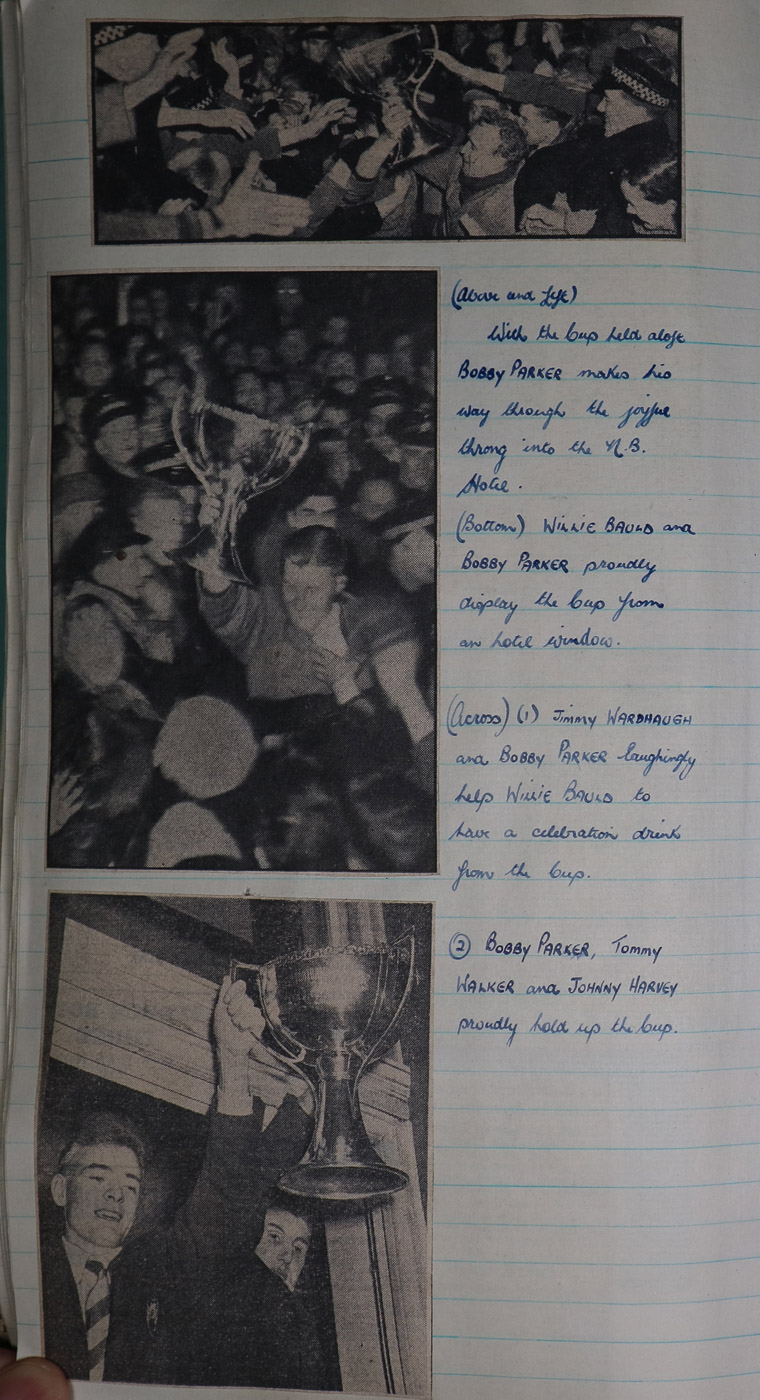 (Above and Left)
With the Cup held aloft
BOBBY PARKER makes his
way through the joyful
throng into the N.B.
Hotel.
(Bottom) WILLIE BAULD and
BOBBY PARKER proudly
display the Cup from
an hotel window.
(Across) (1) JIMMY WARDHAUGH
and BOBBY PARKER laughingly
help WILLIE BAULD to
have a celebration drink
from the Cup.
(2) BOBBY PARKER, TOMMY
WALKER and JOHNNY HARVEY
proudly hold up the Cup.